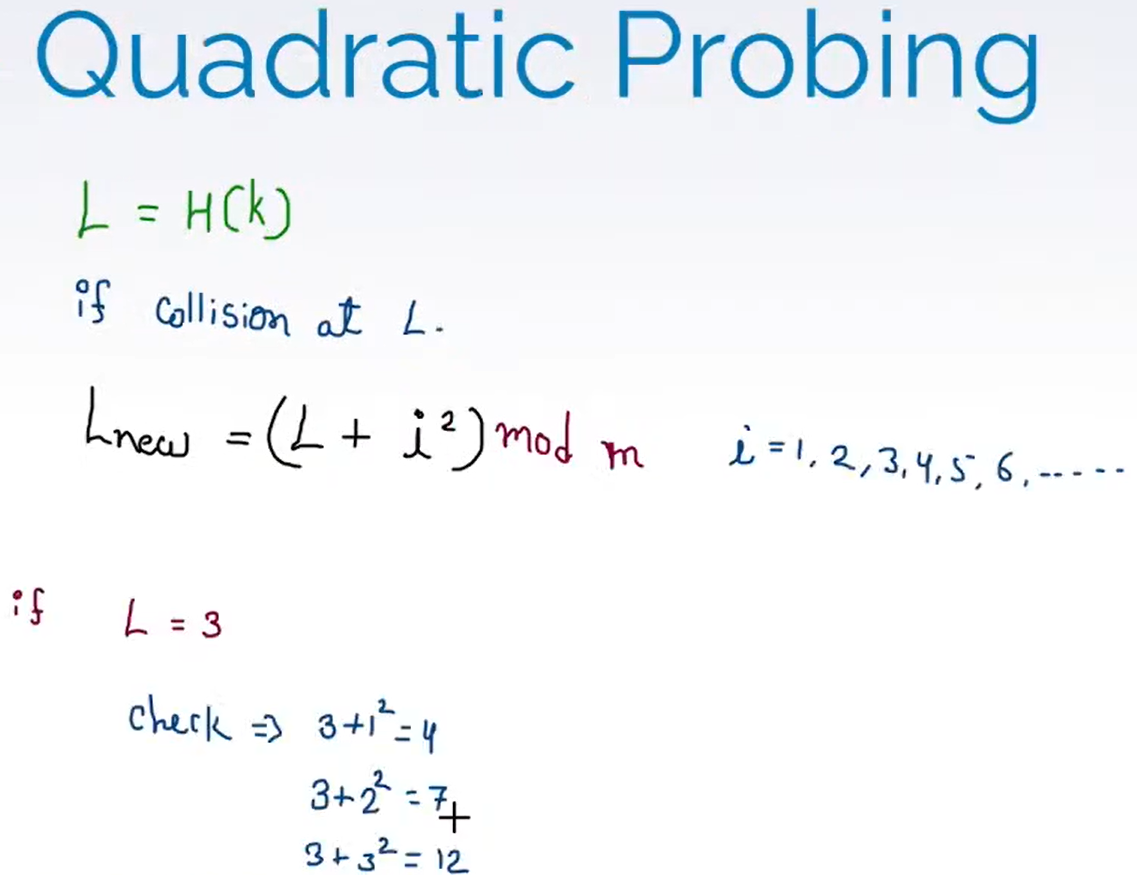 Quadratic Probing
L = H(k)
if collision at L.
Lnew = (L + i²) mod m i = 1, 2, 3, 4, 5, 6, ------
if L = 3
check ⇒ 3+1² = 4
3+2² = 7
3+3² = 12